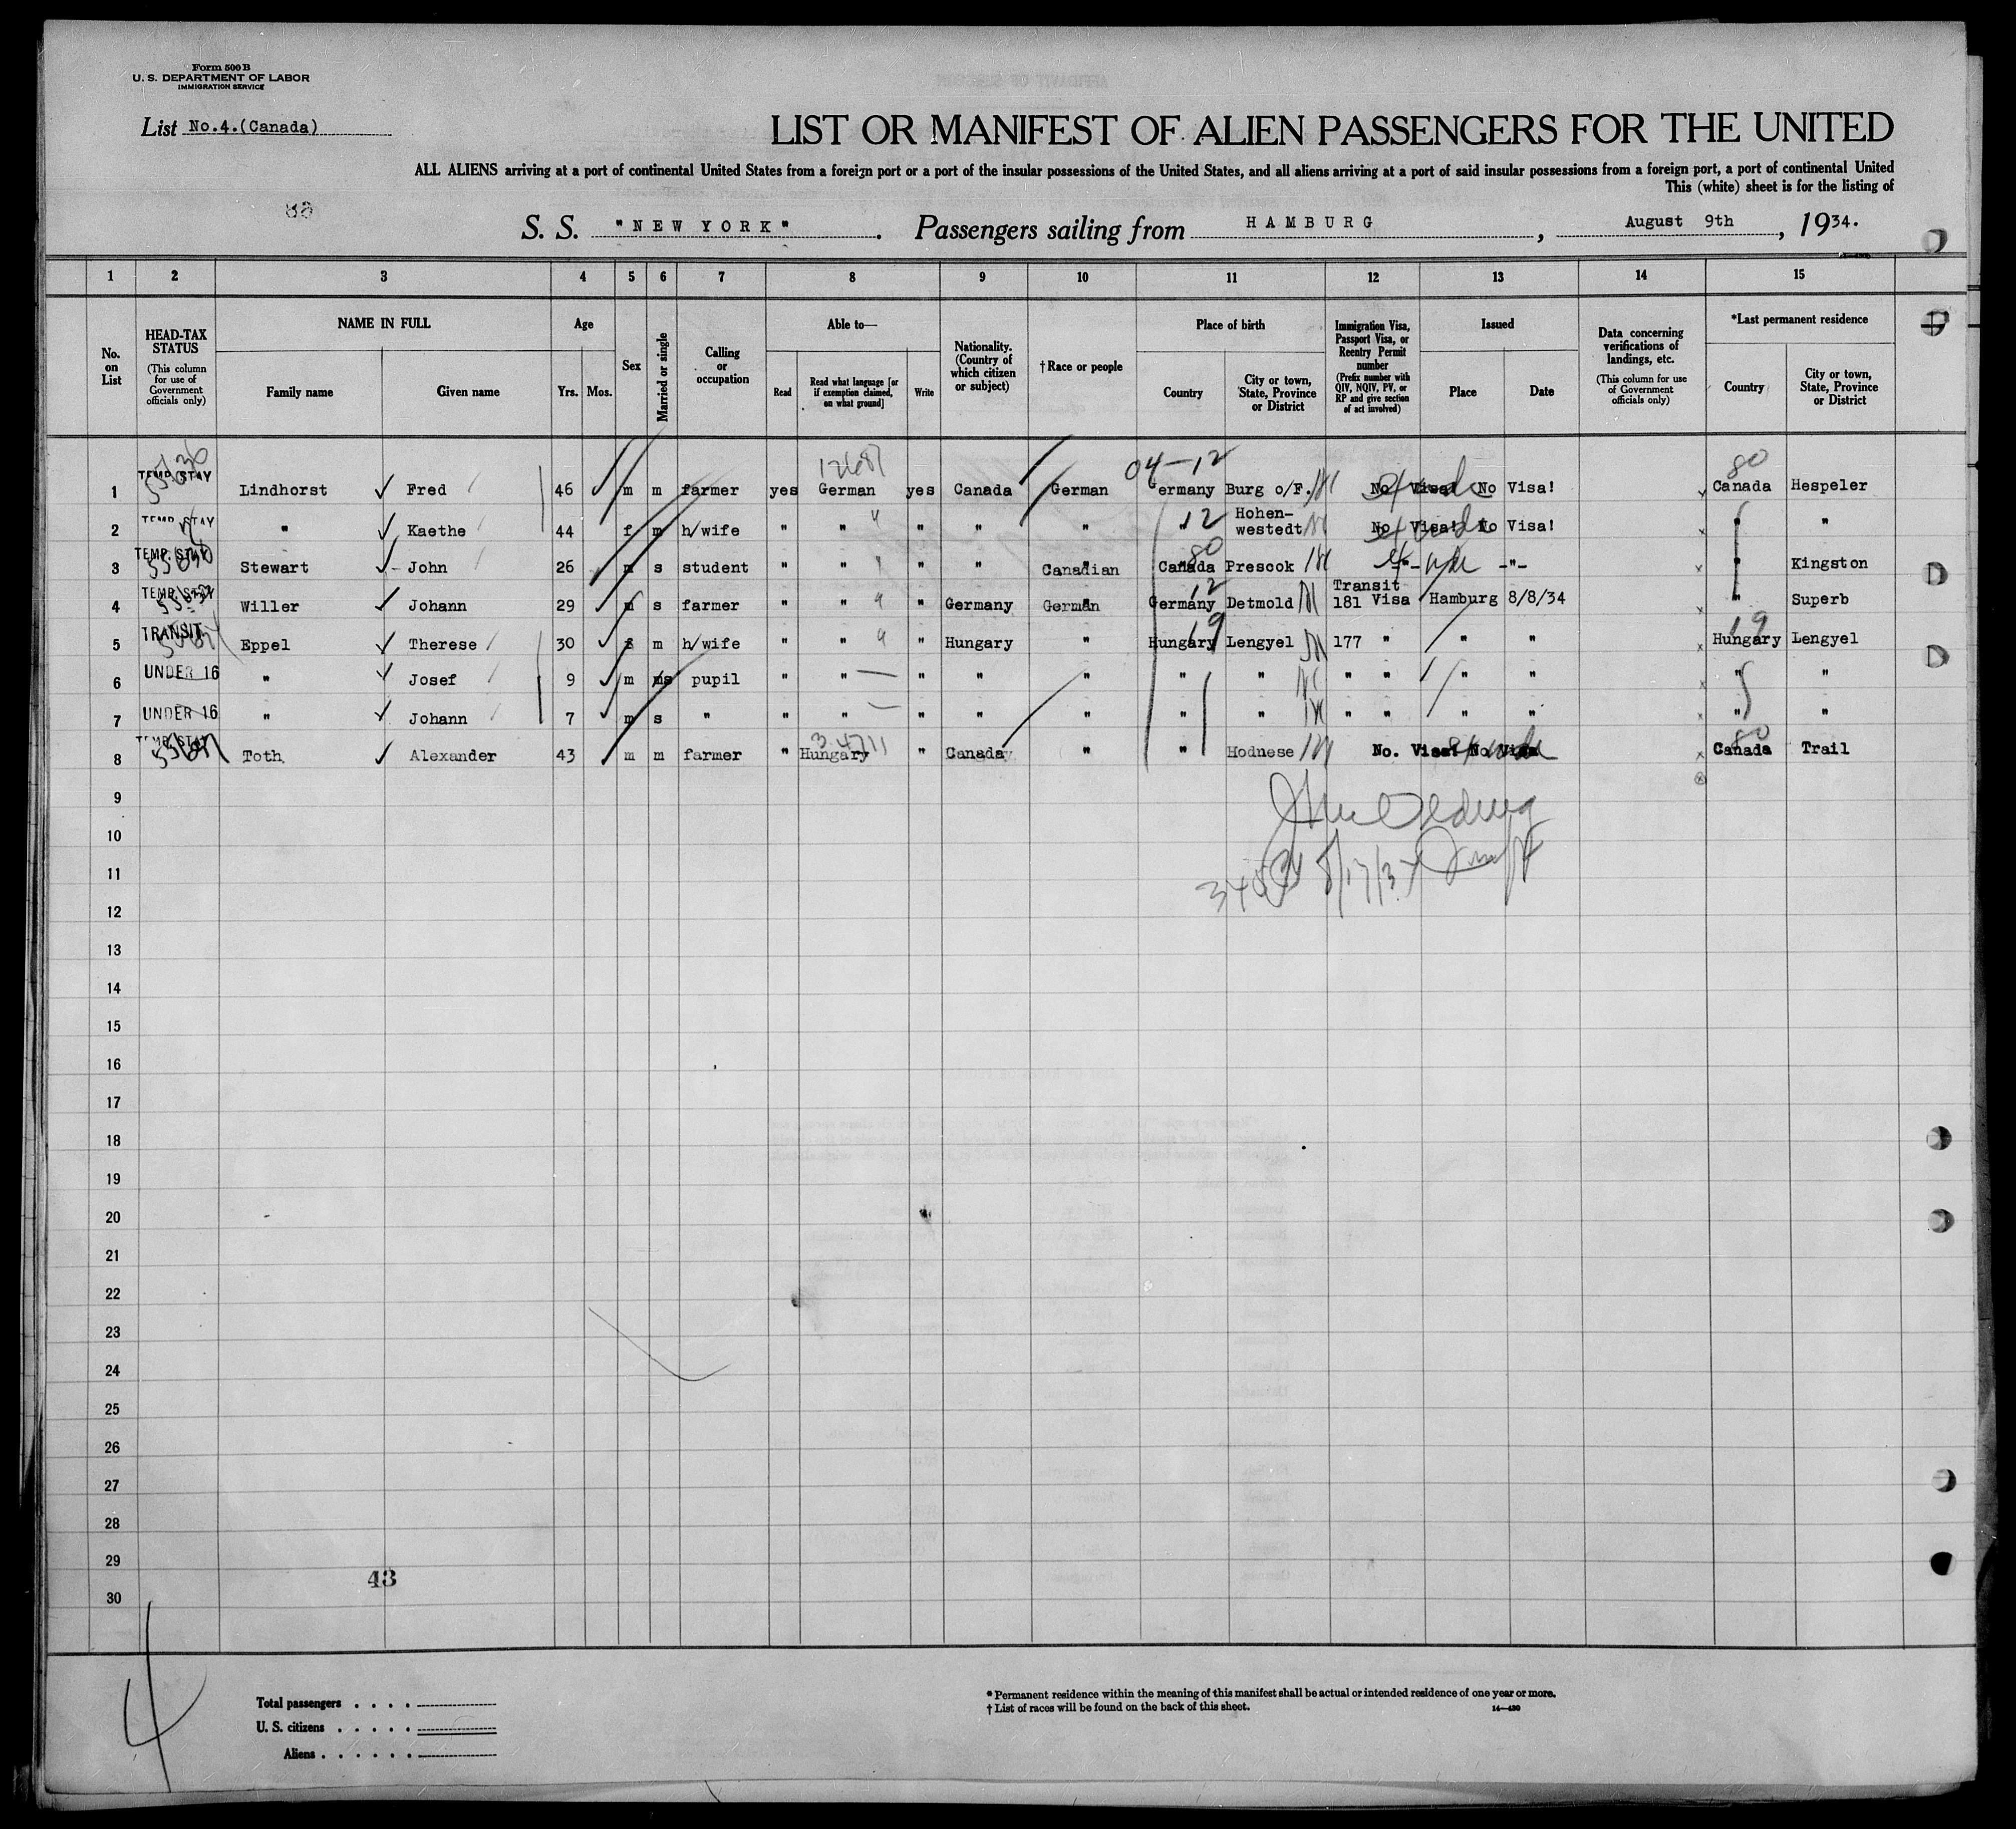 Form 500 B
U. S. DEPARTMENT OF LABOR
IMMIGRATION SERVICE
List No.4.(Canada)
LIST OR MANIFEST OF ALIEN PASSENGERS FOR THE UNITED
ALL ALIENS arriving at a port of continental United States from a foreign port or a port of the insular possessions of the United States, and all aliens arriving at a port of said insular possessions from a foreign port, a port of continental United
This (white) sheet is for the listing of
S. S. "NEW YORK". Passengers sailing from HAMBURG, August 9th, 1934.
1 2 3 4 5 6 7 8 9 10 11 12 13 14 15
No. on List
HEAD-TAX STATUS (This column for use of Government officials only)
NAME IN FULL
Family name Given name
Age
Yrs. Mos.
Sex
Married or single
Calling or occupation
Able to—
Read Read what language [or if exemption claimed, on what ground] Write
Nationality. (Country of which citizen or subject)
† Race or people
Place of birth
Country City or town, State, Province or District
Immigration Visa, Passport Visa, or Reentry Permit number (Prefix number with QIV, NQIV, PV, or RP and give section of act involved)
Issued
Place Date
Data concerning verifications of landings, etc. (This column for use of Government officials only)
*Last permanent residence
Country City or town, State, Province or District
12681 04-12 80
1 TEMP. STAY Lindhorst Fred 46 m m farmer yes German yes Canada German Germany Burg o/F. No Visa! No Visa! Canada Hespeler
2 TEMP. STAY " Kaethe 44 f m h/wife " " " " " " 12 Hohen-westedt No Visa! No Visa! " "
3 TEMP. STAY Stewart John 26 m s student " " " " Canadian 80 Canada Prescok -"- -"- " Kingston
4 TEMP. STAY Willer Johann 29 m s farmer " " " Germany German 12 Germany Detmold Transit 181 Visa Hamburg 8/8/34 " Superb
5 TRANSIT Eppel Therese 30 f m h/wife " " " Hungary " 19 Hungary Lengyel 177 " " " 19 Hungary Lengyel
6 UNDER 16 " Josef 9 m ms pupil " " " " " " " " " " " " "
7 UNDER 16 " Johann 7 m s " " " " " " " " " " " " " "
8 TEMP. STAY Toth Alexander 43 m m farmer " Hungary " Canada " " Hodnese No. Visa! No Visa 80 Canada Trail
9
10
11
12
13
14
15
16
17
18
19
20
21
22
23
24
25
26
27
28
29
30
43
4
Total passengers . . . .
U. S. citizens . . . . .
Aliens . . . . . .
* Permanent residence within the meaning of this manifest shall be actual or intended residence of one year or more.
† List of races will be found on the back of this sheet. 14—430